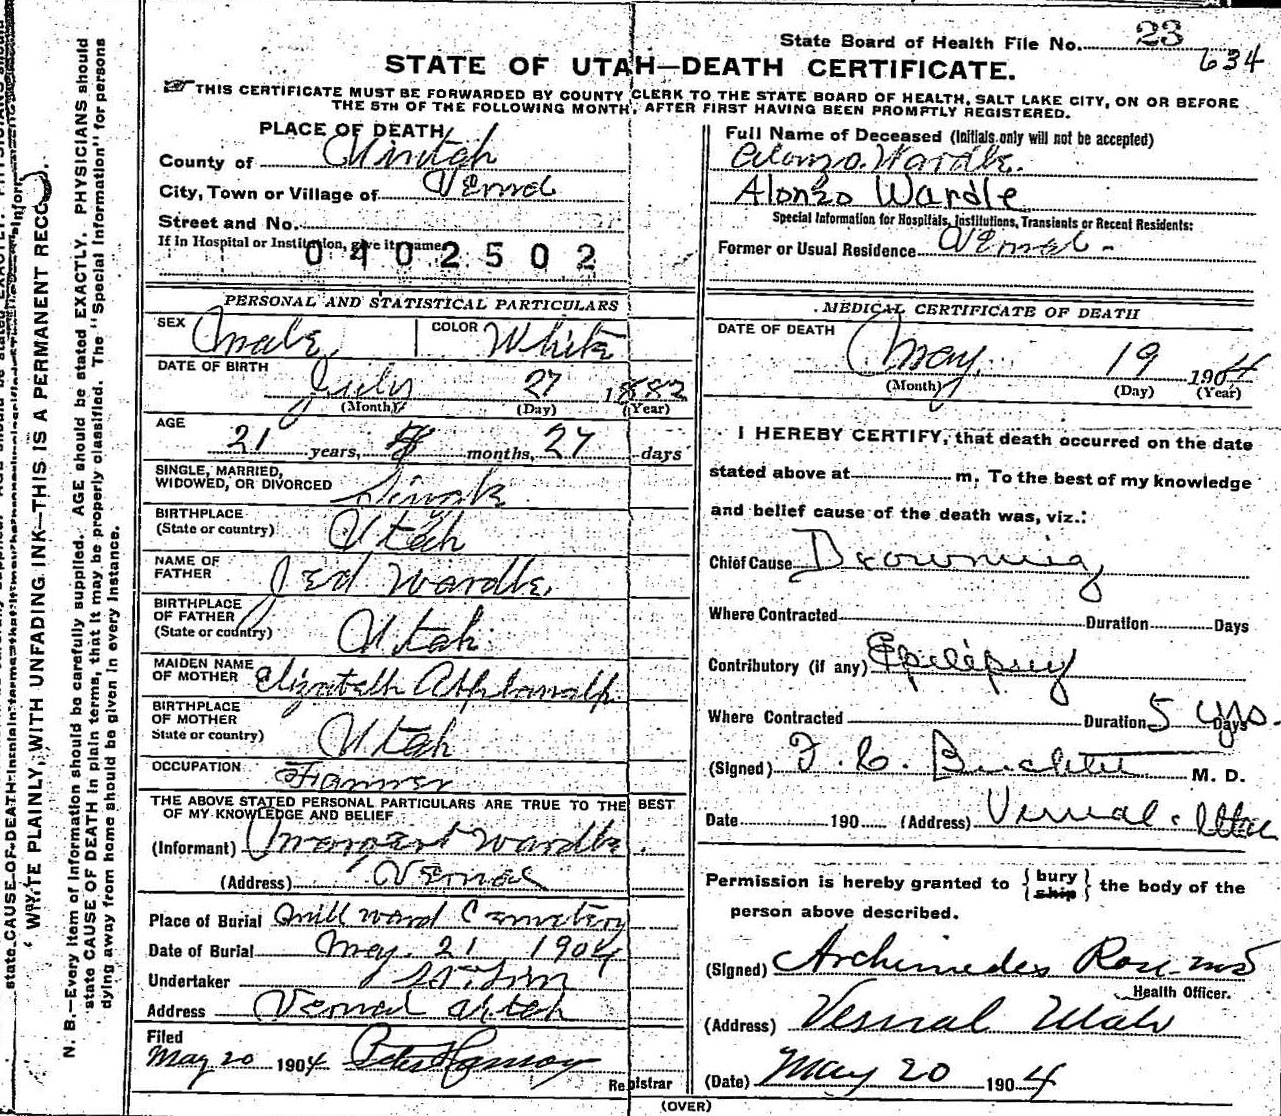 State Board of Health File No. 23
634
STATE OF UTAH—DEATH CERTIFICATE.
THIS CERTIFICATE MUST BE FORWARDED BY COUNTY CLERK TO THE STATE BOARD OF HEALTH, SALT LAKE CITY, ON OR BEFORE
THE 5TH OF THE FOLLOWING MONTH, AFTER FIRST HAVING BEEN PROMPTLY REGISTERED.
PLACE OF DEATH
County of Uintah
City, Town or Village of Vernal
Street and No.
If in Hospital or Institution, give its name
0402502
Full Name of Deceased (Initials only will not be accepted)
Alonzo Wardle.
Alonzo Wardle
Special Information for Hospitals, Institutions, Transients or Recent Residents:
Former or Usual Residence Vernal -
PERSONAL AND STATISTICAL PARTICULARS
SEX Male, COLOR White
DATE OF BIRTH
July 27 1882
(Month) (Day) (Year)
AGE
21 years, months, 27 days
SINGLE, MARRIED,
WIDOWED, OR DIVORCED Single
BIRTHPLACE
(State or country) Utah
NAME OF
FATHER Jed Wardle,
BIRTHPLACE
OF FATHER
(State or country) Utah
MAIDEN NAME
OF MOTHER Elizabeth
BIRTHPLACE
OF MOTHER
State or country) Utah
OCCUPATION Farmer
THE ABOVE STATED PERSONAL PARTICULARS ARE TRUE TO THE BEST
OF MY KNOWLEDGE AND BELIEF
(Informant) Margaret Wardle.
(Address) Vernal
Place of Burial Mill ward Cemetery
Date of Burial May. 21 1904
Undertaker
Address Vernal Utah
Filed
May 20 1904 Peter Hanson
Registrar
MEDICAL CERTIFICATE OF DEATH
DATE OF DEATH
May. 19 1904
(Month) (Day) (Year)
I HEREBY CERTIFY, that death occurred on the date
stated above at m. To the best of my knowledge
and belief cause of the death was, viz.:
Chief Cause Drowning
Where Contracted Duration Days
Contributory (if any) Epilepsy
Where Contracted Duration 5 yrs. Days
(Signed) F. C. M. D.
Date 190 (Address) Vernal. Utah
Permission is hereby granted to { bury ship } the body of the
person above described.
(Signed) Archimedes Rose MD
Health Officer.
(Address) Vernal Utah
(Date) May 20 1904
(OVER)
WRITE PLAINLY, WITH UNFADING INK—THIS IS A PERMANENT RECORD.
N. B.—Every item of information should be carefully supplied. AGE should be stated EXACTLY. PHYSICIANS should
state CAUSE OF DEATH in plain terms, that it may be properly classified. The "Special Information" for persons
dying away from home should be given in every instance.